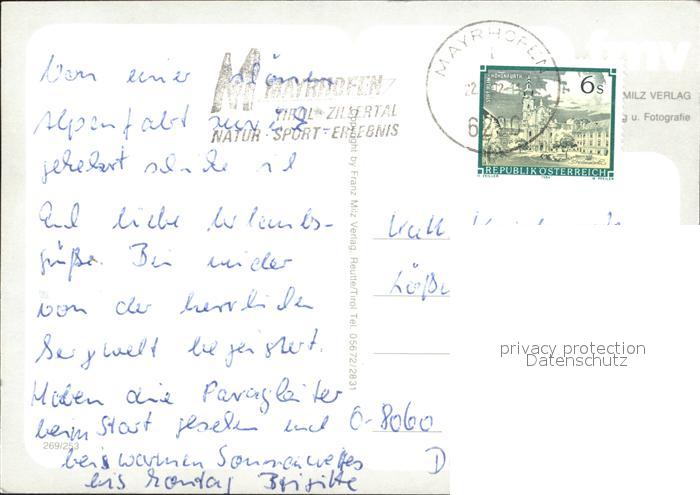 Von einer schönen
Alpenfahrt zurück-
gekehrt schicke ich
Euch liebe Urlaubs-
grüße. Bin wieder
von der herrlichen
Bergwelt begeistert.
Haben die Paragleiter
beim Start gesehen und
bei warmen Sonnenwetter
bis Montag Brigitte
269/253
MAYRHOFEN
TIROL-ZILLERTAL
NATUR-SPORT-ERLEBNIS
MAYRHOFEN
6290
STIFT HOHENFURTH
6 S
REPUBLIK ÖSTERREICH
fmv
MILZ VERLAG
g u. Fotografie
Copyright by Franz Milz Verlag, Reutte/Tirol Tel. 05672/2831
O-8060
D
privacy protection
Datenschutz